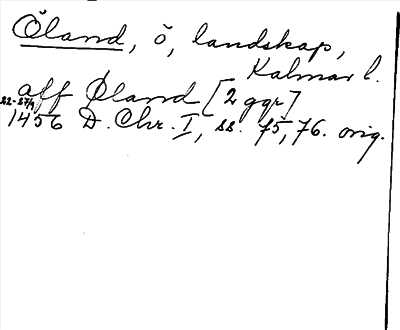 Öland, ö, landskap,
Kalmar l.
aff Øland [2 ggr]
22-27/9 1456 D. Chr. I, ss. 75, 76. orig.